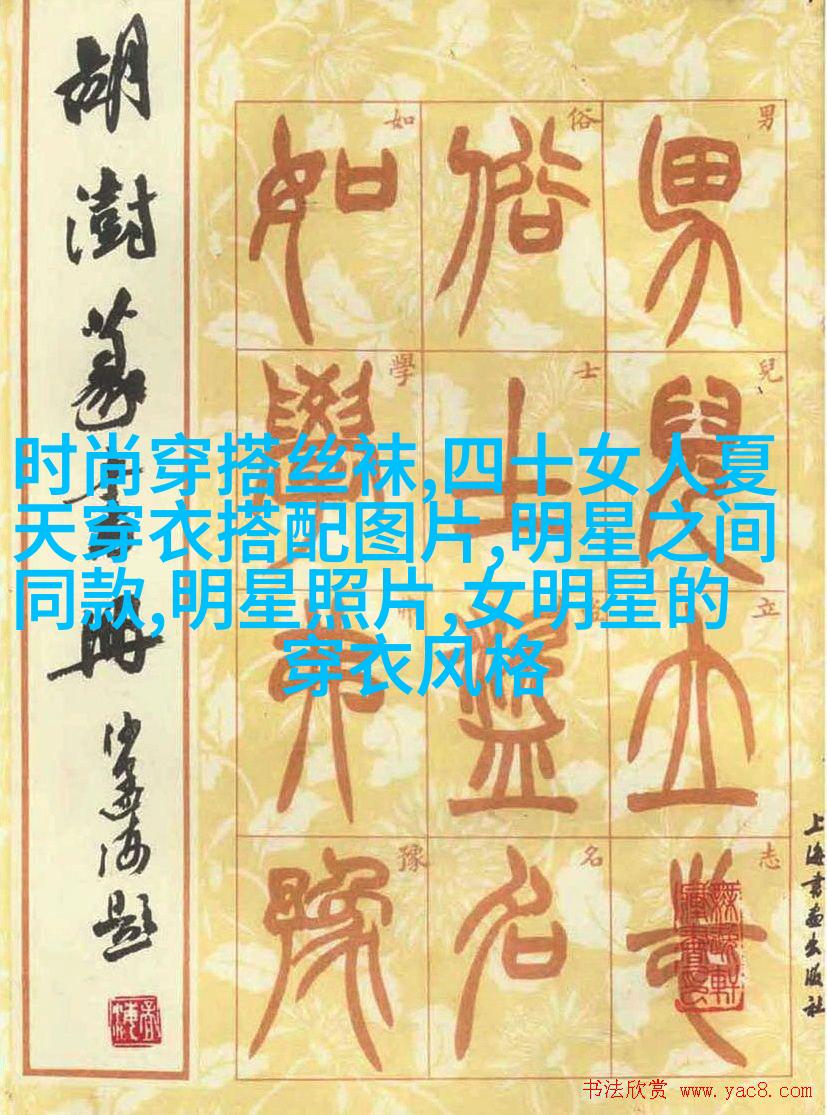 时尚穿搭丝袜,四十女人夏
天穿衣搭配图片,明星之间
同款,明星照片,女明星的
穿衣风格
胡澍篆書冊
沙孟海題
男兒立志
男兒立志
俗士益名
俗士名
如學 豫
如學豫
上海書畫出版社
书法欣赏 www.yac8.com